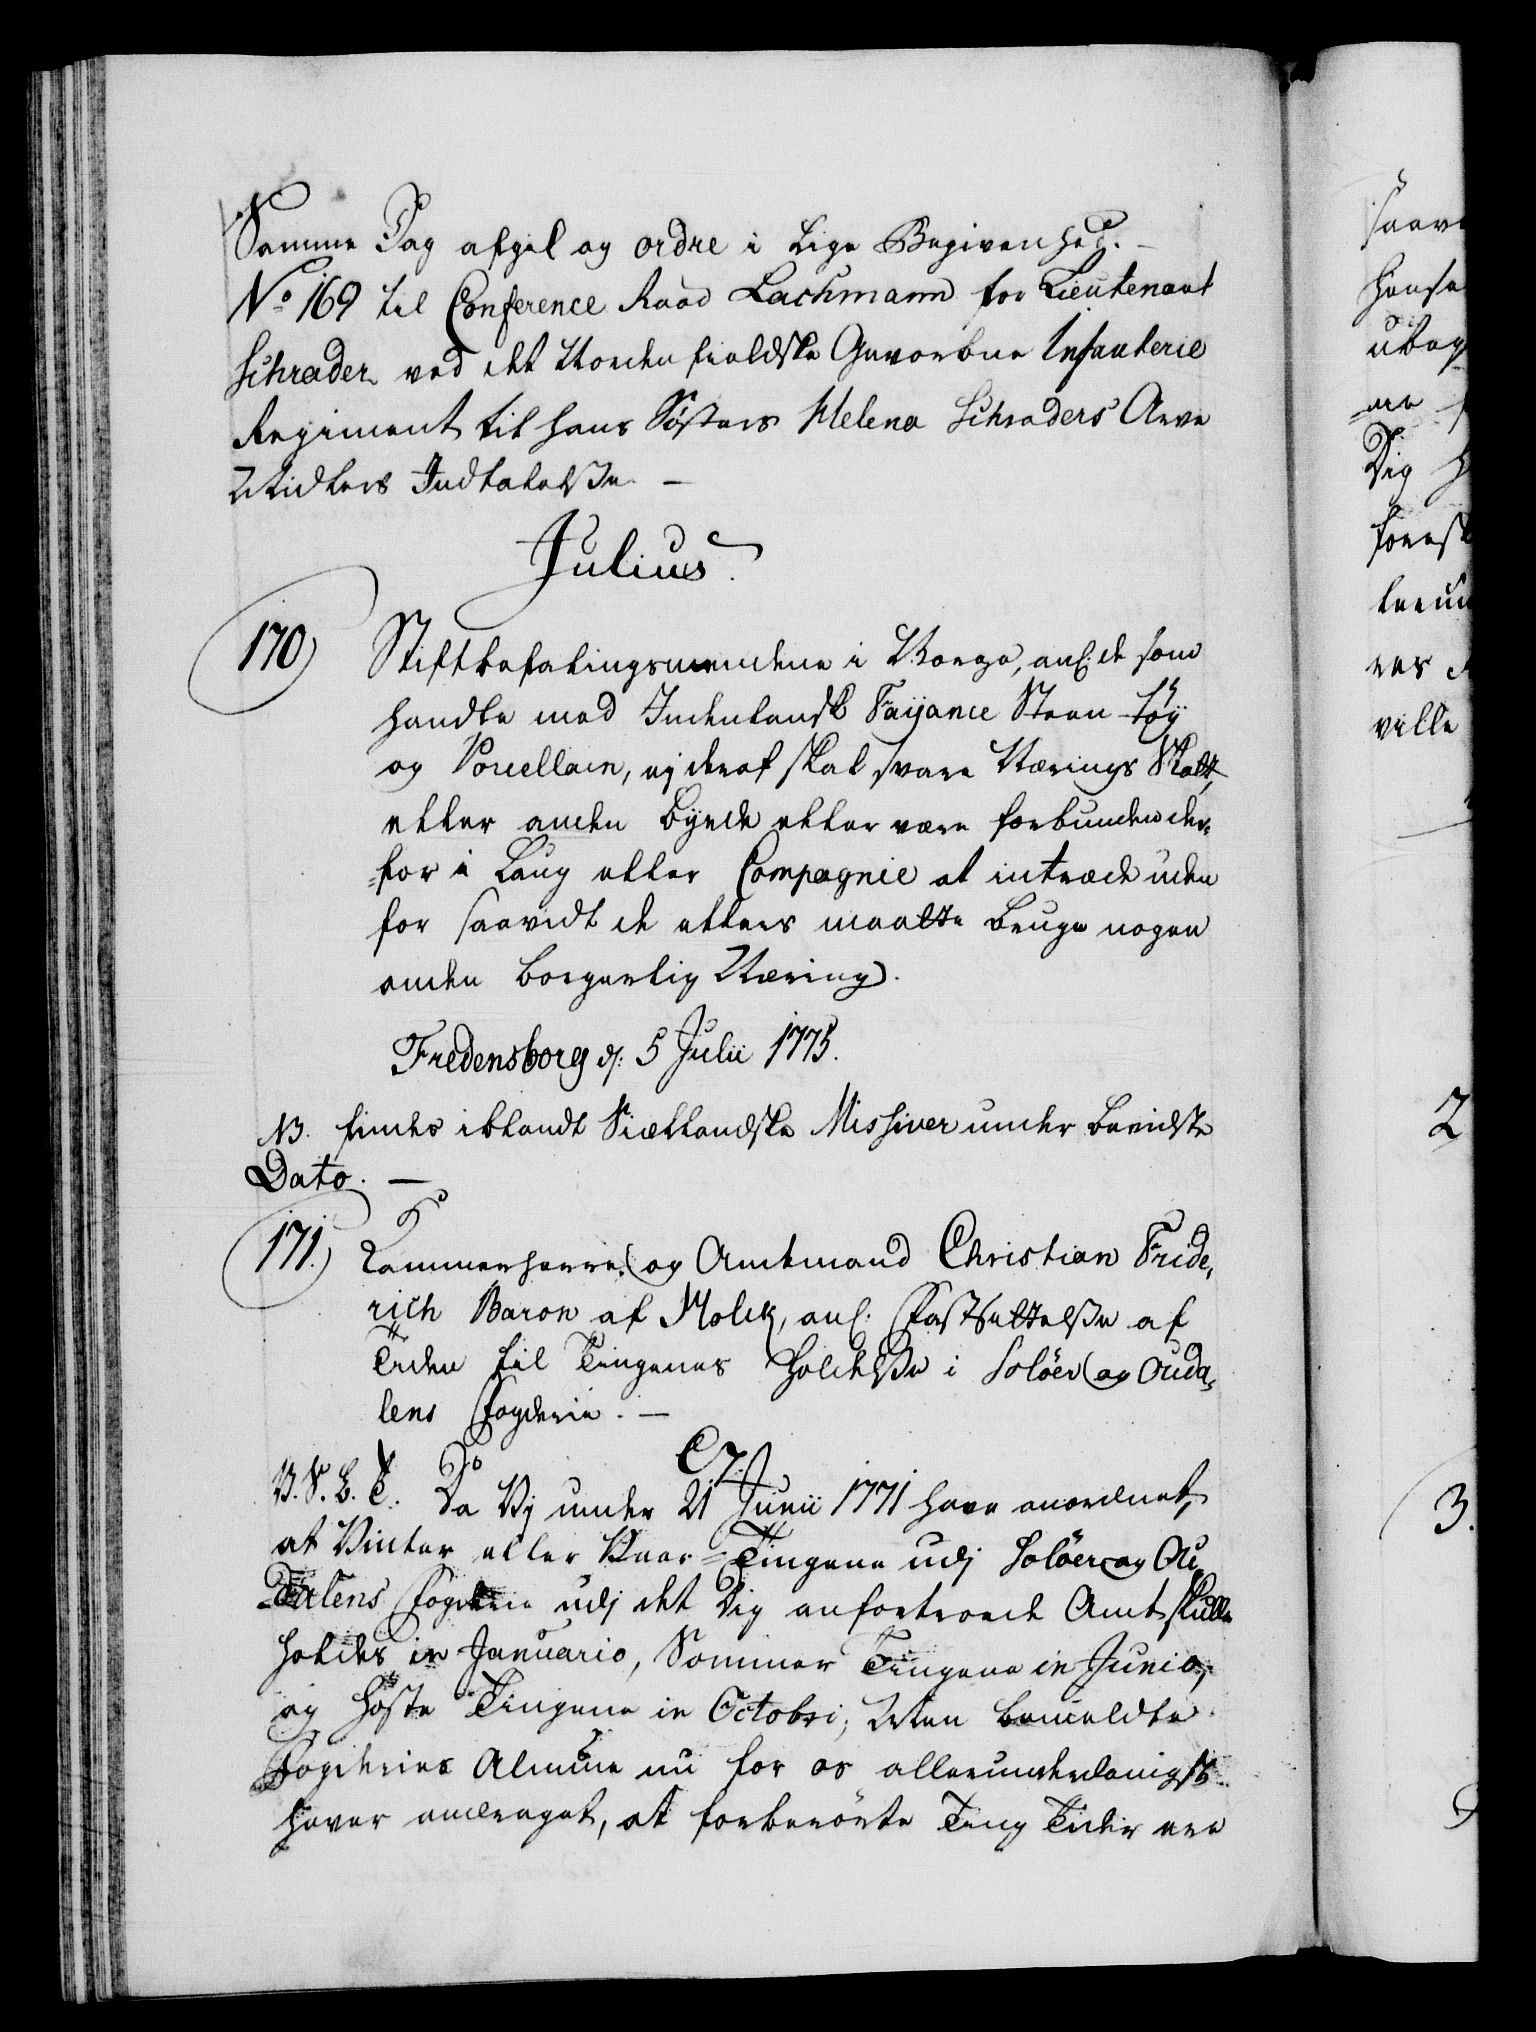 Samme Dag afgik og ordre i lige Begivenhed. –
No 169 til Conference Raad Lachmann for Lieutenant
Schrader ved det Nordenfieldske Gevorbne Infanterie
Regiment til hans Søsters Helena Schraders Arve
Midlers Indtalelse. –
Julius.
170) Stiftbefalingsmændene i Norge, anl. de som
handle med Indenlandsk Fayance Steen-töy
og Porcellain, ej deraf skal svare Nærings Skatt,
eller anden byrde eller være forbunden der-
=for i Laug eller Compagnie at intræde uden
for saavidt de ellers maatte bruge nogen
anden borgerlig Næring.
Fredensborg d: 5 Julii 1775.
NB. findes iblandt Siællandske Missiver under bevidste
Dato. –
171.) Kammerherre og Amtmand Christian Fride-
rich Baron af Holck, anl. Fastsættelse af
Tiden til Tingenes Holdelse i Soløer og Ouda-
lens Fogderie. –
V. S. G. T. Da Vj under 21 Junii 1771 have anordnet,
at Vinter eller Vaar=Tingene udj Soløer og Ou-
=dalens Fogderie udj det Dig anfortroede Amt skulle
holdes in Januario, Sommer Tingene in Junio,
og Høste Tingene in Octobri; Men bemeldte
Fogderies Almue nu for os allerunderdanigst
haver andraget, at forberörte Ting Tider ere